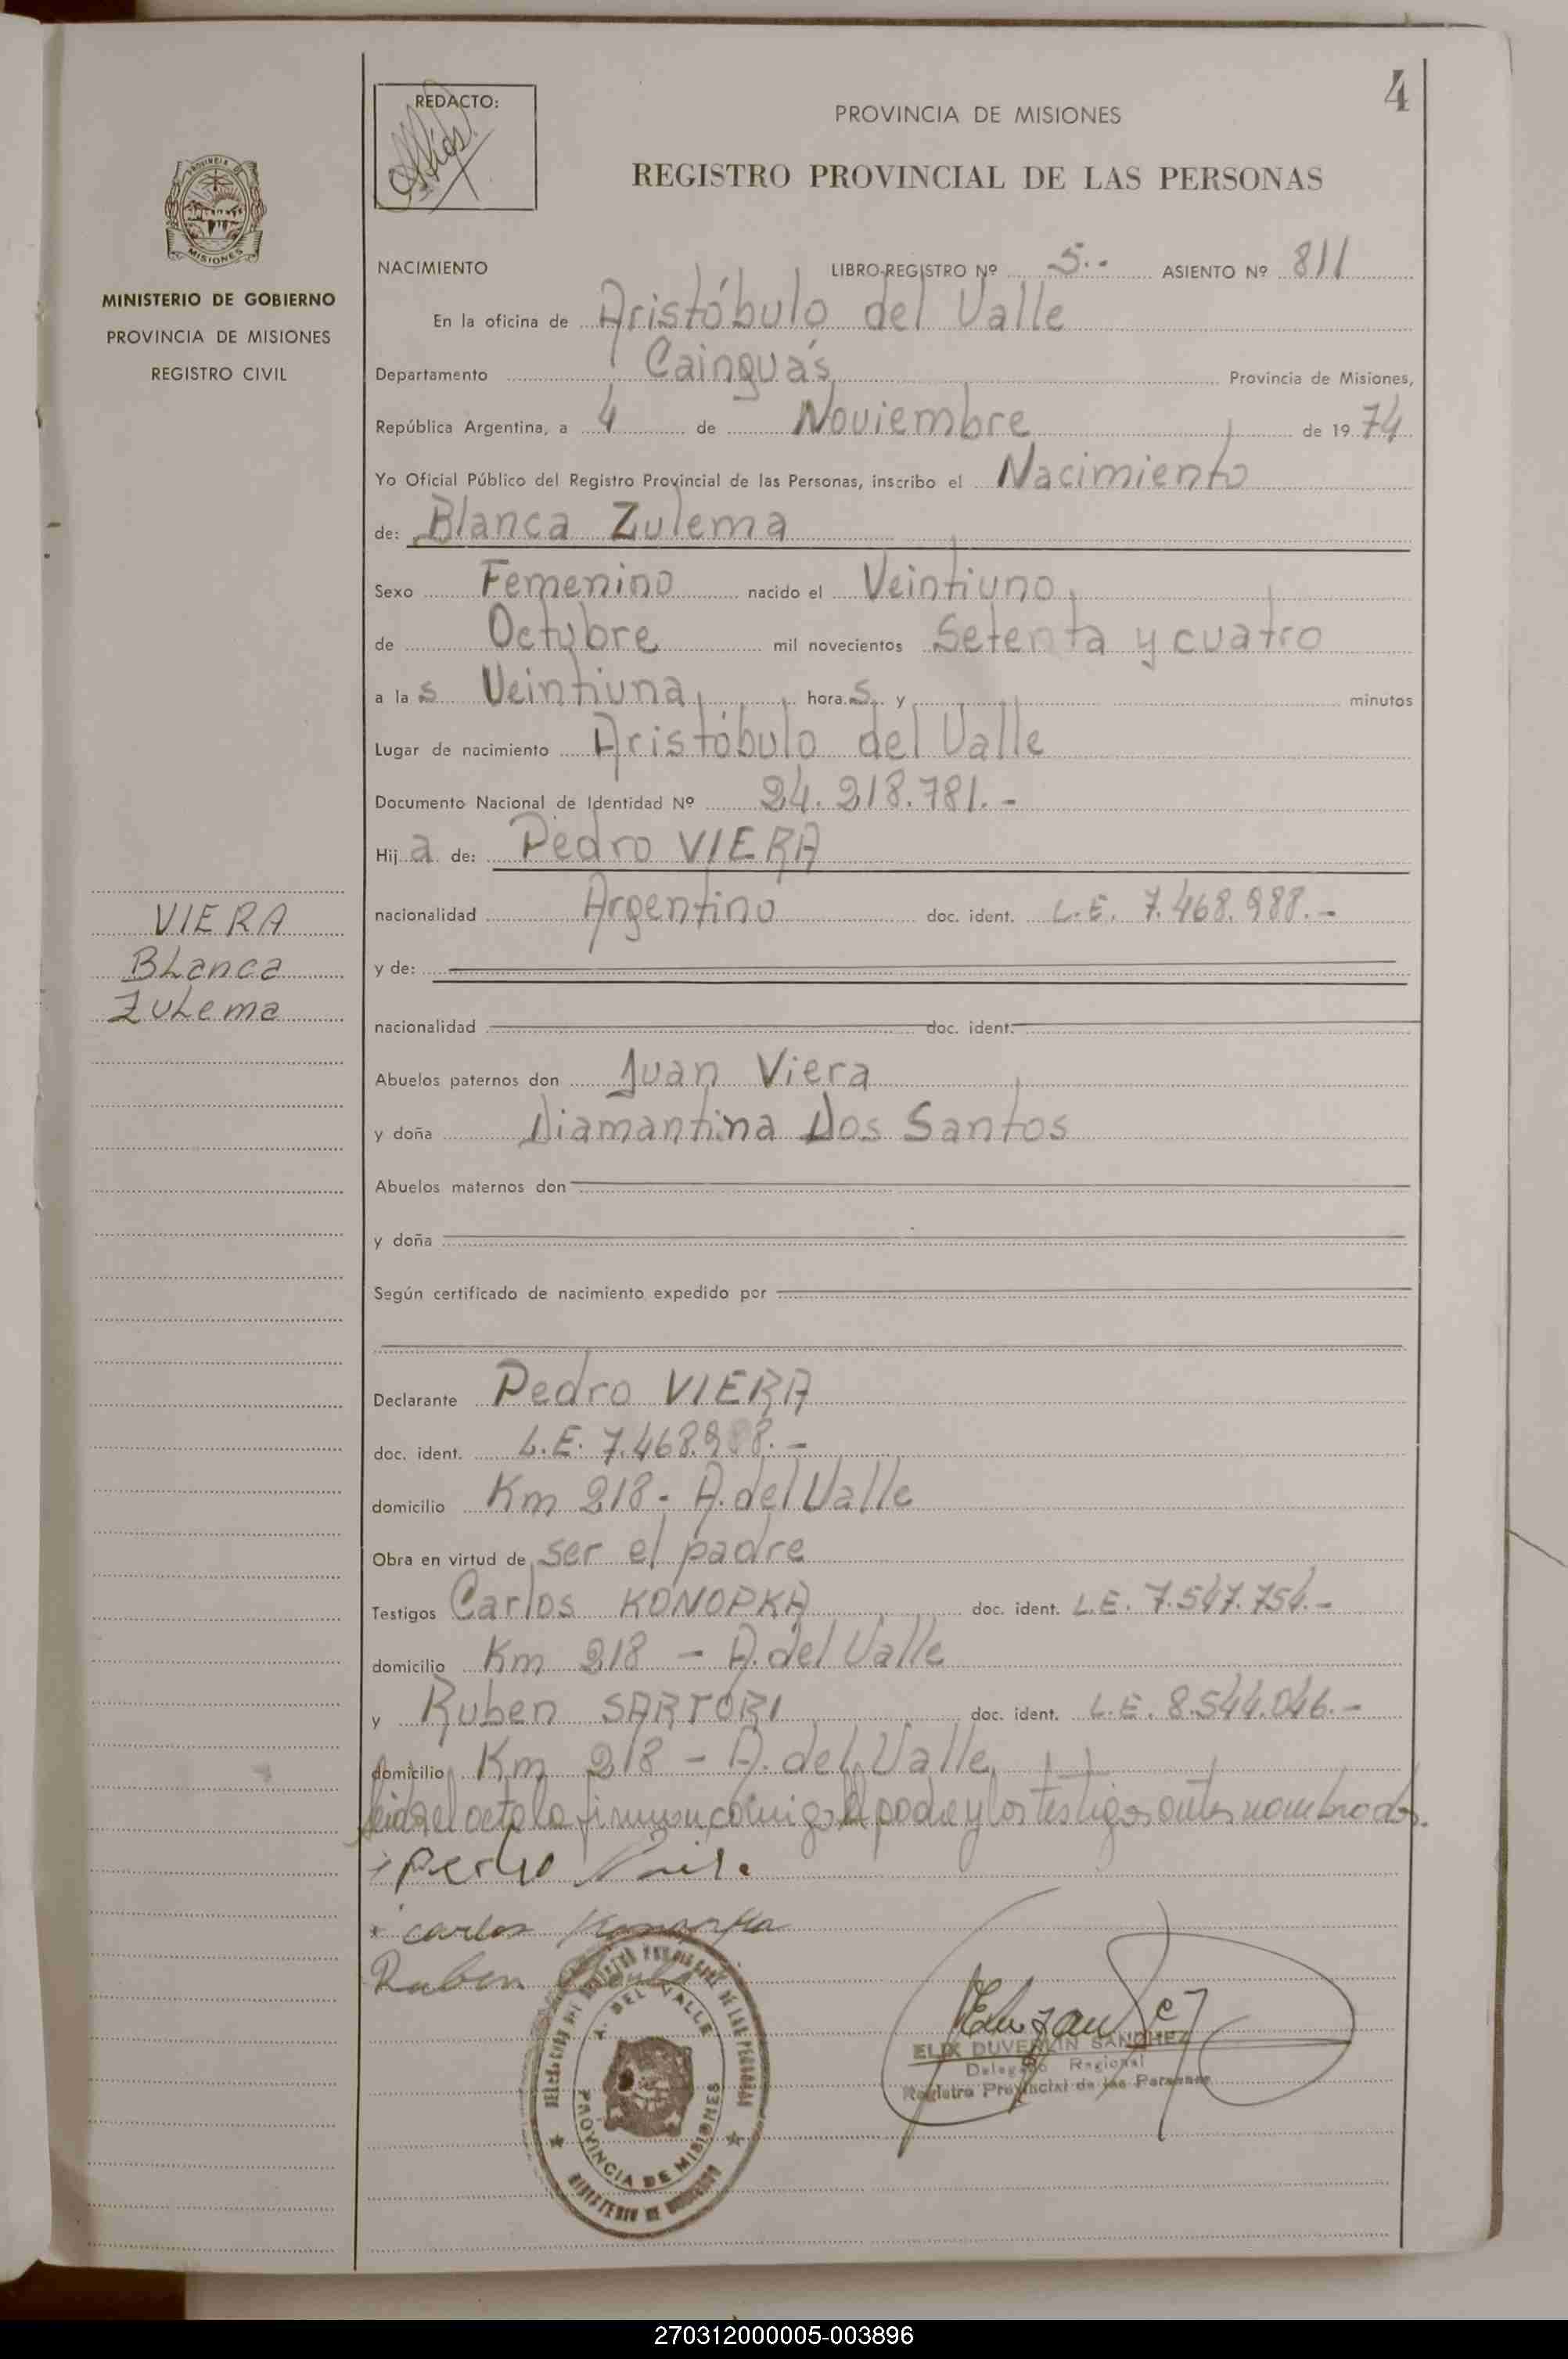 4
REDACTO:
PROVINCIA DE MISIONES
REGISTRO PROVINCIAL DE LAS PERSONAS
PROVINCIA DE
MISIONES
MINISTERIO DE GOBIERNO
PROVINCIA DE MISIONES
REGISTRO CIVIL
NACIMIENTO LIBRO-REGISTRO Nº 5.- ASIENTO Nº 811
En la oficina de Aristóbulo del Valle
Departamento Cainguás Provincia de Misiones,
República Argentina, a 4 de Noviembre de 1974
Yo Oficial Público del Registro Provincial de las Personas, inscribo el Nacimiento
de: Blanca Zulema
Sexo Femenino nacido el Veintiuno
de Octubre mil novecientos Setenta y cuatro
a las Veintiuna horas y minutos
Lugar de nacimiento Aristóbulo del Valle
Documento Nacional de Identidad Nº 24.218.781.-
Hija de: Pedro VIERA
nacionalidad Argentino doc. ident. L.E. 7.468.988.-
y de:
nacionalidad doc. ident.
VIERA
Blanca
Zulema
Abuelos paternos don Juan Viera
y doña Diamantina Dos Santos
Abuelos maternos don
y doña
Según certificado de nacimiento expedido por
Declarante Pedro VIERA
doc. ident. L.E. 7.468.988.-
domicilio Km 218- A. del Valle
Obra en virtud de ser el padre
Testigos Carlos KONOPKA doc. ident. L.E. 7.547.754.-
domicilio Km 218 - A. del Valle
y Ruben SARTORI doc. ident. L.E. 8.544.046.-
domicilio Km 218 - A. del Valle
Leida el acta la firman conmigo el padre y los testigos antes nombrados.
Pedro
carlos Konopka
Ruben
A. DEL VALLE
PROVINCIA DE MISIONES
MINISTERIO DE GOBIERNO
ELIX DUVERLIN SANCHEZ
Delegado Regional
Registro Provincial de las Personas
270312000005-003896